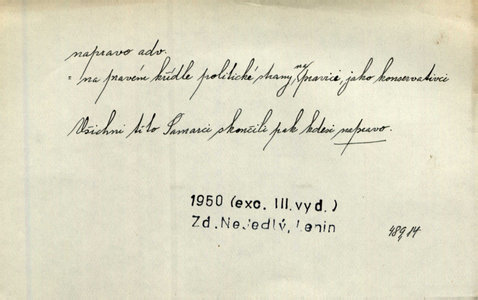 napravo adv.
= na pravém křídle politické strany, na pravici jako konservativci
Všichni tito Samarci skončili pak kdesi napravo.
1950 (exc. III. vyd.)
Zd. Nejedlý, Lenin
489 84